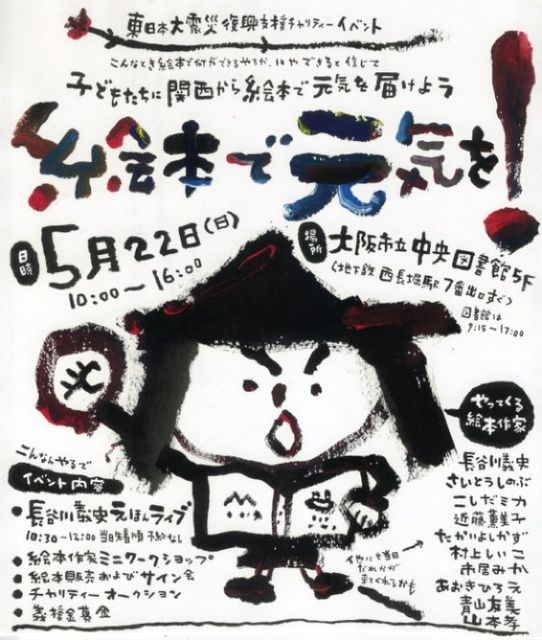 東日本大震災復興支援チャリティーイベント
こんなとき絵本で何ができるやろか、いやできると信じて
子どもたちに関西から絵本で元気を届けよう
絵本で元気を!
日時
5月22日(日)
10:00～16:00
場所
大阪市立中央図書館5F
(地下鉄 西長堀駅7番出口すぐ)
図書館は
9:15～17:00
こんなんやるで
イベント内容
●長谷川義史えほんライブ
10:30～12:00 当日先着順 予約なし
●絵本作家ミニワークショップ
●絵本販売およびサイン会
●チャリティーオークション
●義援金募金
やってくる
絵本作家
長谷川義史
さいとうしのぶ
こしだミカ
近藤薫美子
たかいよしかず
村上しいこ
市居みか
あおきひろえ
青山友美
山本孝
イヤにも当日
だれかが
来てくれるかも